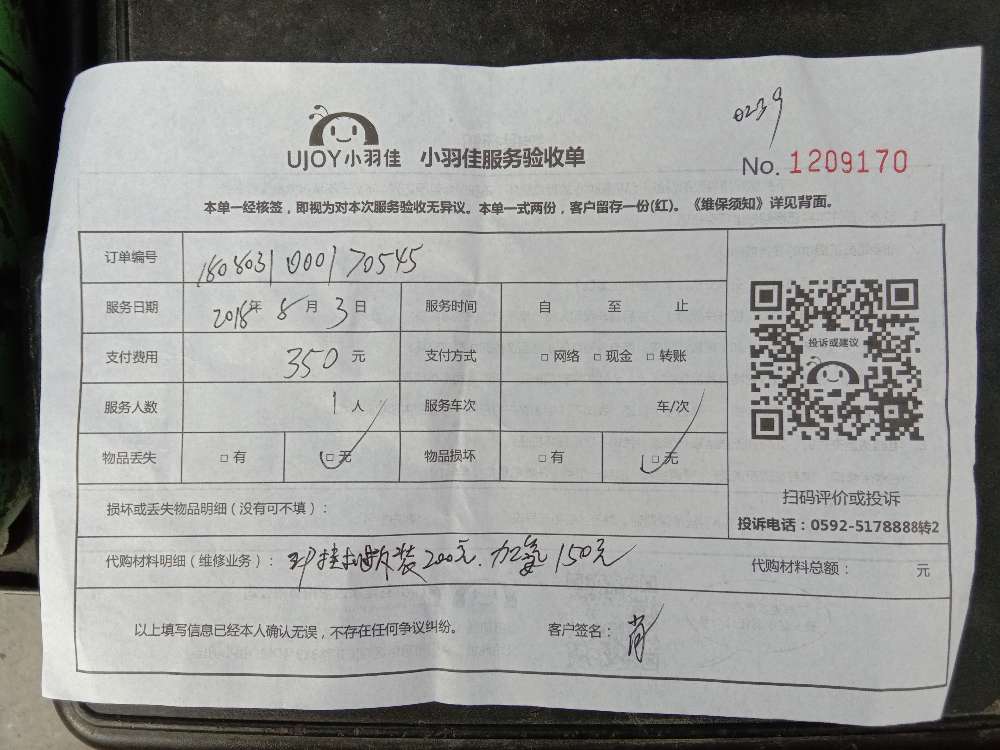 0239
UJOY小羽佳 小羽佳服务验收单
No. 1209170
本单一经核签，即视为对本次服务验收无异议。本单一式两份，客户留存一份(红)。《维保须知》详见背面。
订单编号 180803100170545
服务日期 2018年 8月 3日 服务时间 自 至 止
支付费用 350元 支付方式 □网络 □现金 □转账
服务人数 1人 服务车次 车/次
物品丢失 □有 □无 物品损坏 □有 □无
投诉或建议
扫码评价或投诉
投诉电话：0592-5178888转2
损坏或丢失物品明细（没有可不填）：
代购材料明细（维修业务）： 挂机 装200元. 加氟150元
代购材料总额： 元
以上填写信息已经本人确认无误，不存在任何争议纠纷。 客户签名： 肖